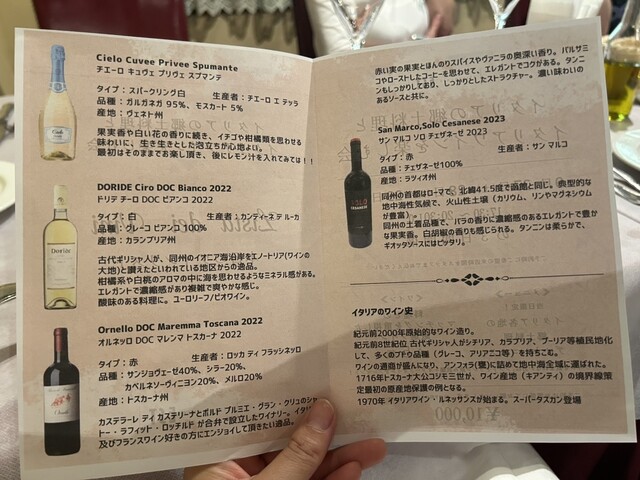 Cielo Cuvee Privee Spumante
チエーロ キュヴェ プリヴェ スプマンテ
タイプ:スパークリング白 生産者:チエーロ エ テッラ
品種:ガルガネガ 95%、モスカート 5%
産地:ヴェネト州
果実香や白い花の香りに続き、イチゴや柑橘類を思わせる
味わいに、生き生きとした泡立ちが心地よい。
最初はそのままでお楽し頂き、後にレモン汁を入れてみては!!
DORIDE Ciro DOC Bianco 2022
ドリデ チーロ DOC ビアンコ 2022
タイプ:白 生産者:カンティーネ デ ルーカ
品種:グレーコ ビアンコ 100%
産地:カランブリア州
古代ギリシャ人が、同州のイオニア海沿岸をエノートリア(ワインの
大地)と讃えたといわれている地区からの逸品。
柑橘系や白桃のアロマの中に海を思わせるようなミネラル感がある。
エレガントで濃縮感があり複雑で爽やかな感じ。
酸味のある料理に。ユーロリーフ/ビオワイン。
Ornello DOC Maremma Toscana 2022
オルネッロ DOC マレンマ トスカーナ 2022
タイプ:赤 生産者:ロッカ ディ フラッシネッロ
品種:サンジョヴェーゼ40%、シラー20%、
カベルネソーヴィニヨン20%、メルロ20%
産地:トスカーナ州
カステラーレ ディ カステリーナとボルドー プルミエ・グラン・クリュのシャ
トー・ラフィット・ロッチルド が合弁で設立したワイナリー。イタリ
及びフランスワイン好きの方にエンジョイして頂きたい逸品。
赤い実の果実とほんのりスパイスやヴァニラの奥深い香り。バルサミ
コやローストしたコーヒーを思わせて、エレガントでコクがある。タンニ
ンもしっかりしており、しっかりとしたストラクチャー。濃い味わいの
あるソースと共に。
San Marco,Solo Cesanese 2023
サン マルコ ソロ チェザネーゼ 2023
タイプ:赤 生産者:サン マルコ
品種:チェザネーゼ100%
産地:ラツィオ州
同州の首都はローマで、北緯41.5度で函館と同じ。典型的な
地中海性気候で、火山性土壌(カリウム、リンやマグネシウム
が豊富)。
同州の土着品種で、バラの香りに濃縮感のあるエレガントで豊か
な果実香。白胡椒の香りも感じられる。タンニンは柔らかで、
ギオッタソースにはピッタリ。
イタリアのワイン史
紀元前2000年原始的なワイン造り。
紀元前8世紀位 古代ギリシャ人がシチリア、カラブリア、プーリア等植民地化
して、多くのブドウ品種(グレーコ、アリアニコ等)を持ちこむ。
ワインの通商が盛んになり、アンフォラ(甕)に詰めて地中海全域に運ばれた。
1716年トスカーナ大公コジモ三世が、ワイン産地(キアンティ)の境界線策
定最初の原産地保護の例となる。
1970年 イタリアワイン・ルネッサンスが始まる。スーパータスカン登場